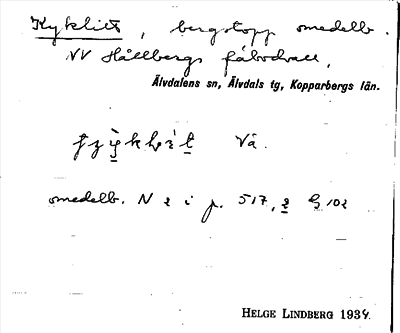 Kyklitt, bergstopp omedelb.
NV Hållbergs fäbodvall,
Älvdalens sn, Älvdals tg, Kopparbergs län.
Vå.
omedelb. N 2 i p. 517, 2 G 102
HELGE LINDBERG 1934.